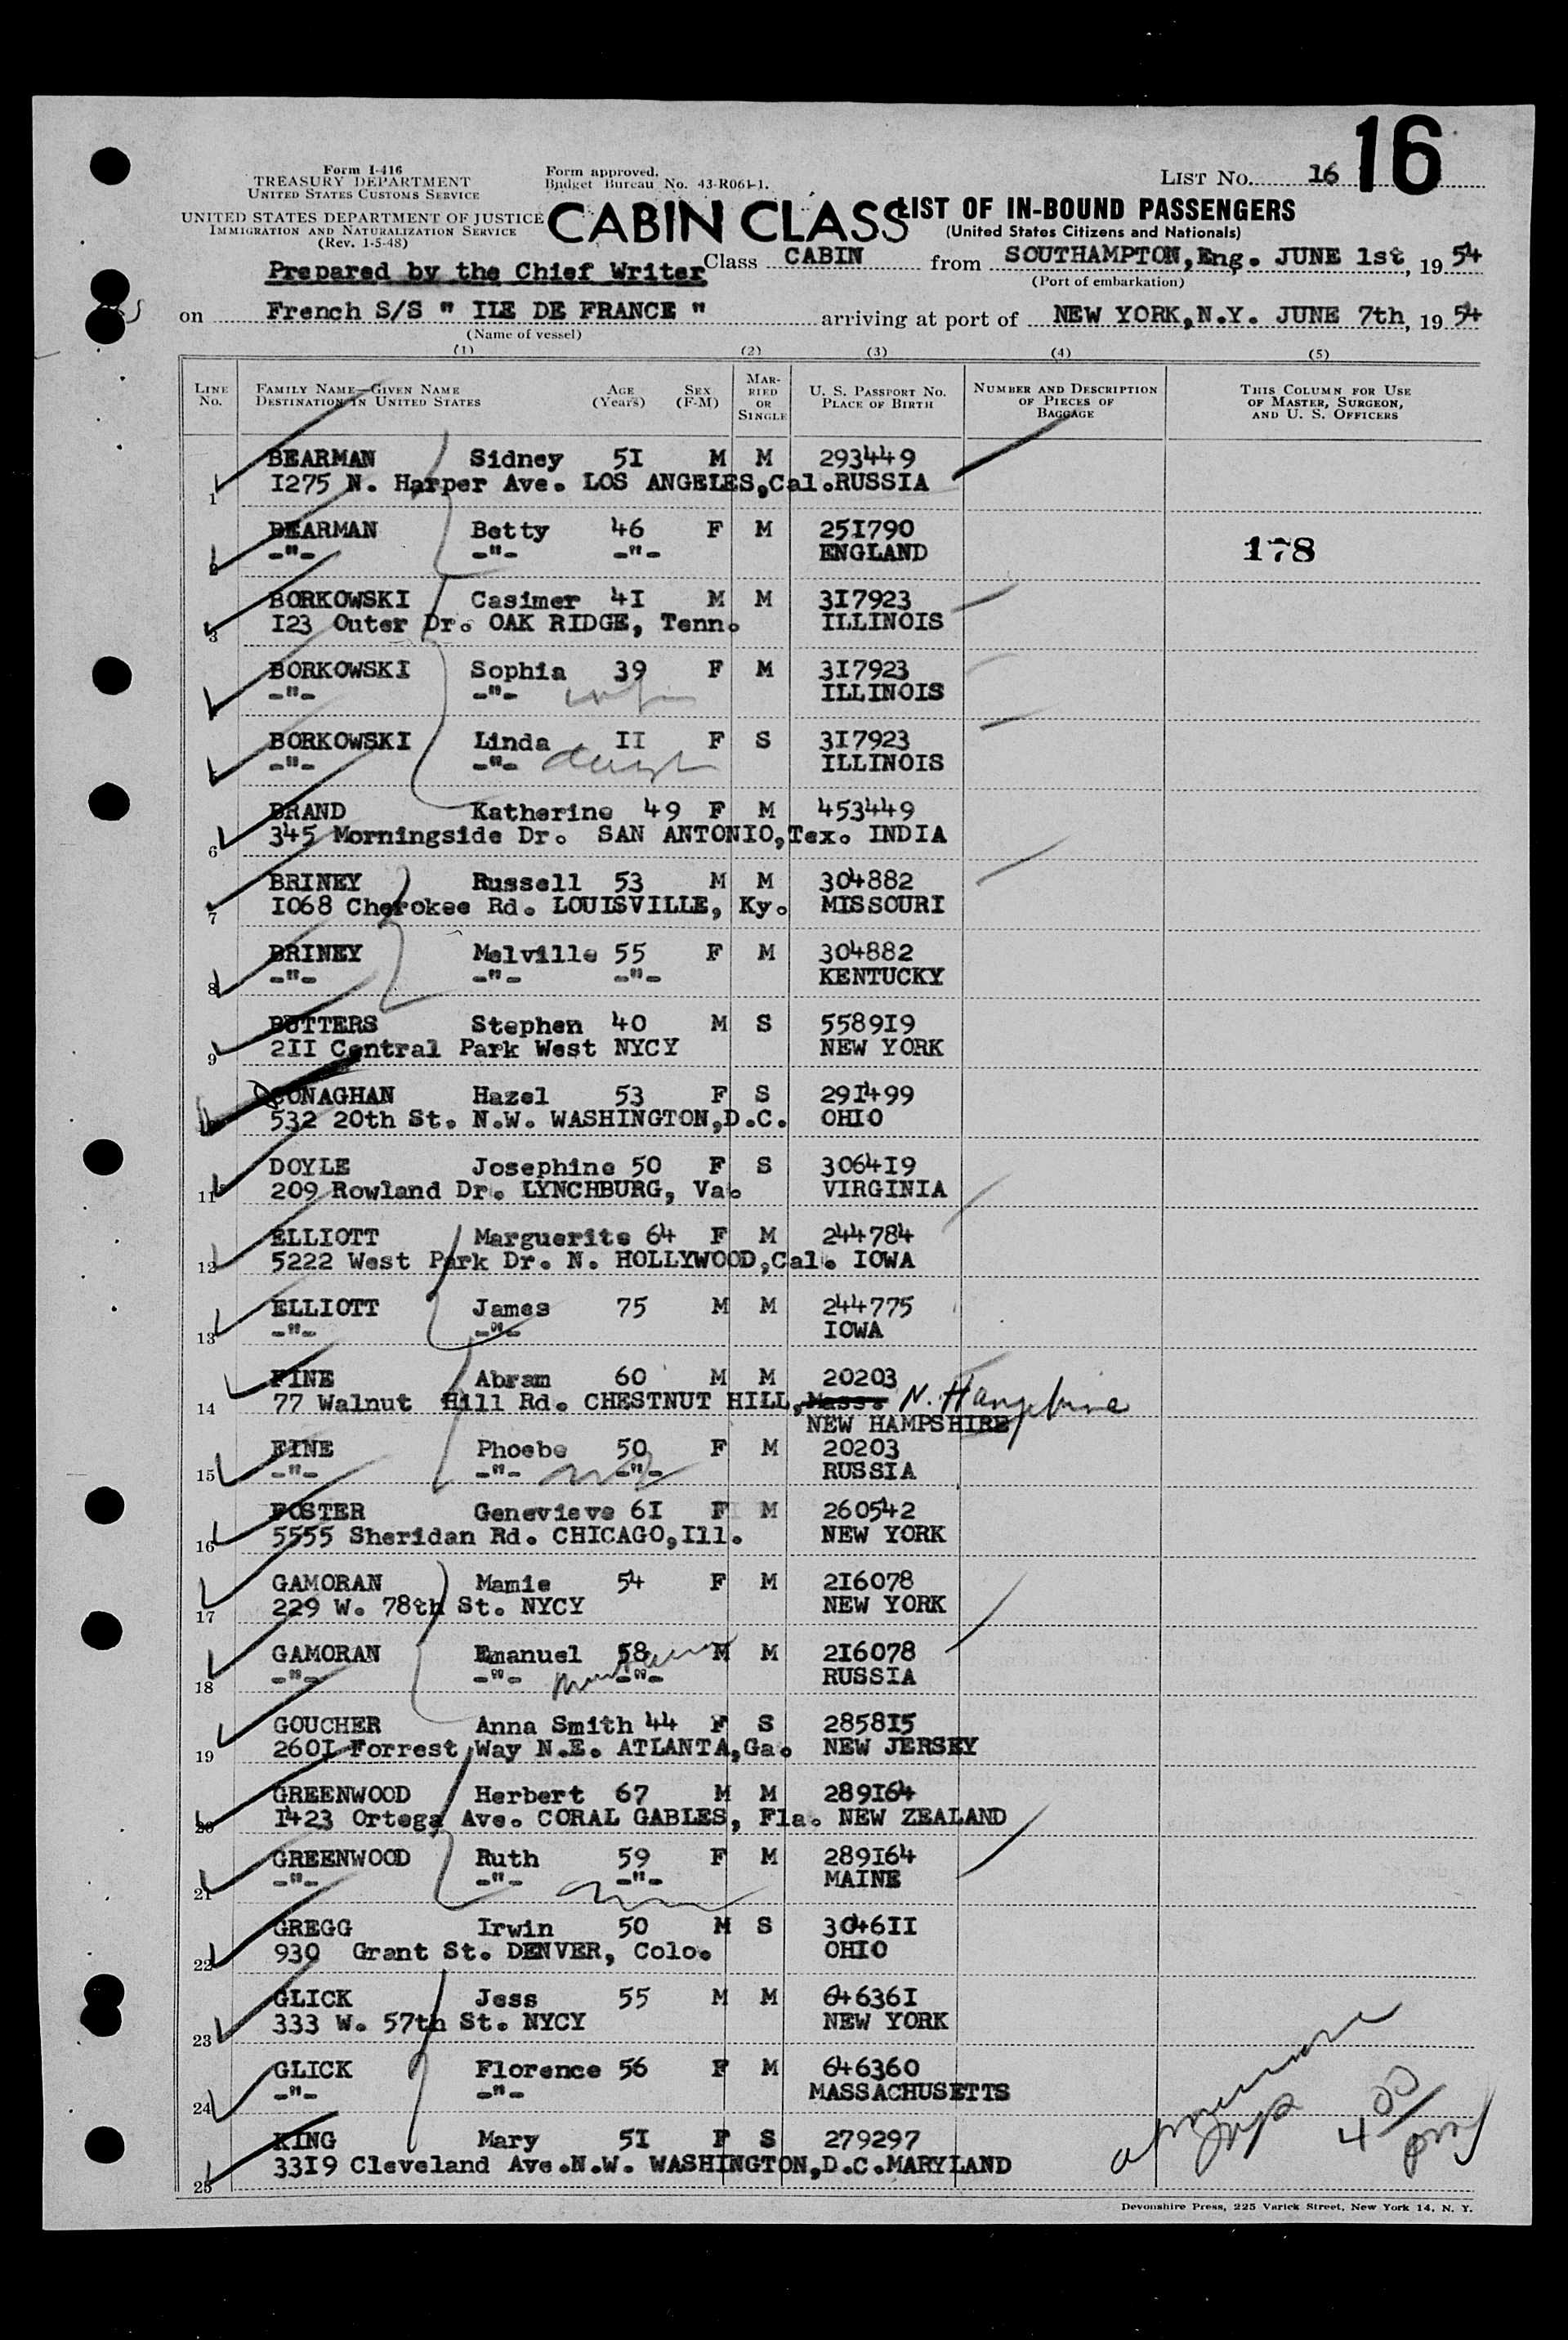 16
Form I-416
TREASURY DEPARTMENT
UNITED STATES CUSTOMS SERVICE
UNITED STATES DEPARTMENT OF JUSTICE
IMMIGRATION AND NATURALIZATION SERVICE
(Rev. 1-5-48)
Form approved.
Budget Bureau No. 43-R061-1.
LIST NO. 16
CABIN CLASS
LIST OF IN-BOUND PASSENGERS
(United States Citizens and Nationals)
Prepared by the Chief Writer
Class CABIN from SOUTHAMPTON,Eng. JUNE 1st, 19 54
(Port of embarkation)
on French S/S " ILE DE FRANCE " arriving at port of NEW YORK,N.Y. JUNE 7th, 19 54
(Name of vessel)
(1) (2) (3) (4) (5)
LINE NO. FAMILY NAME—GIVEN NAME DESTINATION IN UNITED STATES AGE (Years) SEX (F-M) MARRIED OR SINGLE U. S. PASSPORT NO. PLACE OF BIRTH NUMBER AND DESCRIPTION OF PIECES OF BAGGAGE THIS COLUMN FOR USE OF MASTER, SURGEON, AND U. S. OFFICERS
BEARMAN Sidney 5I M M 293449
1 I275 N. Harper Ave. LOS ANGELES,Cal.RUSSIA
BEARMAN Betty 46 F M 25I790
2 -"- -"- -"- ENGLAND 178
BORKOWSKI Casimer 4I M M 3I7923
3 I23 Outer Dr. OAK RIDGE, Tenn. ILLINOIS
BORKOWSKI Sophia 39 F M 3I7923
-"- -"- wife ILLINOIS
BORKOWSKI Linda II F S 3I7923
-"- -"- daught ILLINOIS
BRAND Katherine 49 F M 453449
6 345 Morningside Dr. SAN ANTONIO,Tex. INDIA
BRINEY Russell 53 M M 304882
7 I068 Cherokee Rd. LOUISVILLE, Ky. MISSOURI
BRINEY Melville 55 F M 304882
8 -"- -"- -"- KENTUCKY
BUTTERS Stephen 40 M S 5589I9
9 2II Central Park West NYCY NEW YORK
CONAGHAN Hazel 53 F S 29I499
532 20th St. N.W. WASHINGTON,D.C. OHIO
DOYLE Josephine 50 F S 3064I9
11 209 Rowland Dr. LYNCHBURG, Va. VIRGINIA
ELLIOTT Marguerite 64 F M 244784
12 5222 West Park Dr. N. HOLLYWOOD,Cal. IOWA
ELLIOTT James 75 M M 244775
13 -"- -"- IOWA
FINE Abram 60 M M 20203
14 77 Walnut Hill Rd. CHESTNUT HILL,Mass. N. Hampshire
NEW HAMPSHIRE
FINE Phoebe 50 F M 20203
15 -"- -"- -"- RUSSIA
FOSTER Genevieve 6I F M 260542
16 5555 Sheridan Rd. CHICAGO,Ill. NEW YORK
GAMORAN Mamie 54 F M 2I6078
17 229 W. 78th St. NYCY NEW YORK
GAMORAN Emanuel 58 M M 2I6078
18 -"- -"- -"- RUSSIA
GOUCHER Anna Smith 44 F S 2858I5
19 260I Forrest Way N.E. ATLANTA,Ga. NEW JERSEY
GREENWOOD Herbert 67 M M 289I64
20 I423 Ortega Ave. CORAL GABLES, Fla. NEW ZEALAND
GREENWOOD Ruth 59 F M 289I64
21 -"- -"- -"- MAINE
GREGG Irwin 50 M S 3046II
22 930 Grant St. DENVER, Colo. OHIO
GLICK Jess 55 M M 64636I
23 333 W. 57th St. NYCY NEW YORK
GLICK Florence 56 F M 646360
24 -"- -"- MASSACHUSETTS
KING Mary 5I F S 279297
25 33I9 Cleveland Ave.N.W. WASHINGTON,D.C.MARYLAND
4 00 pm
Devonshire Press, 225 Varick Street, New York 14, N. Y.